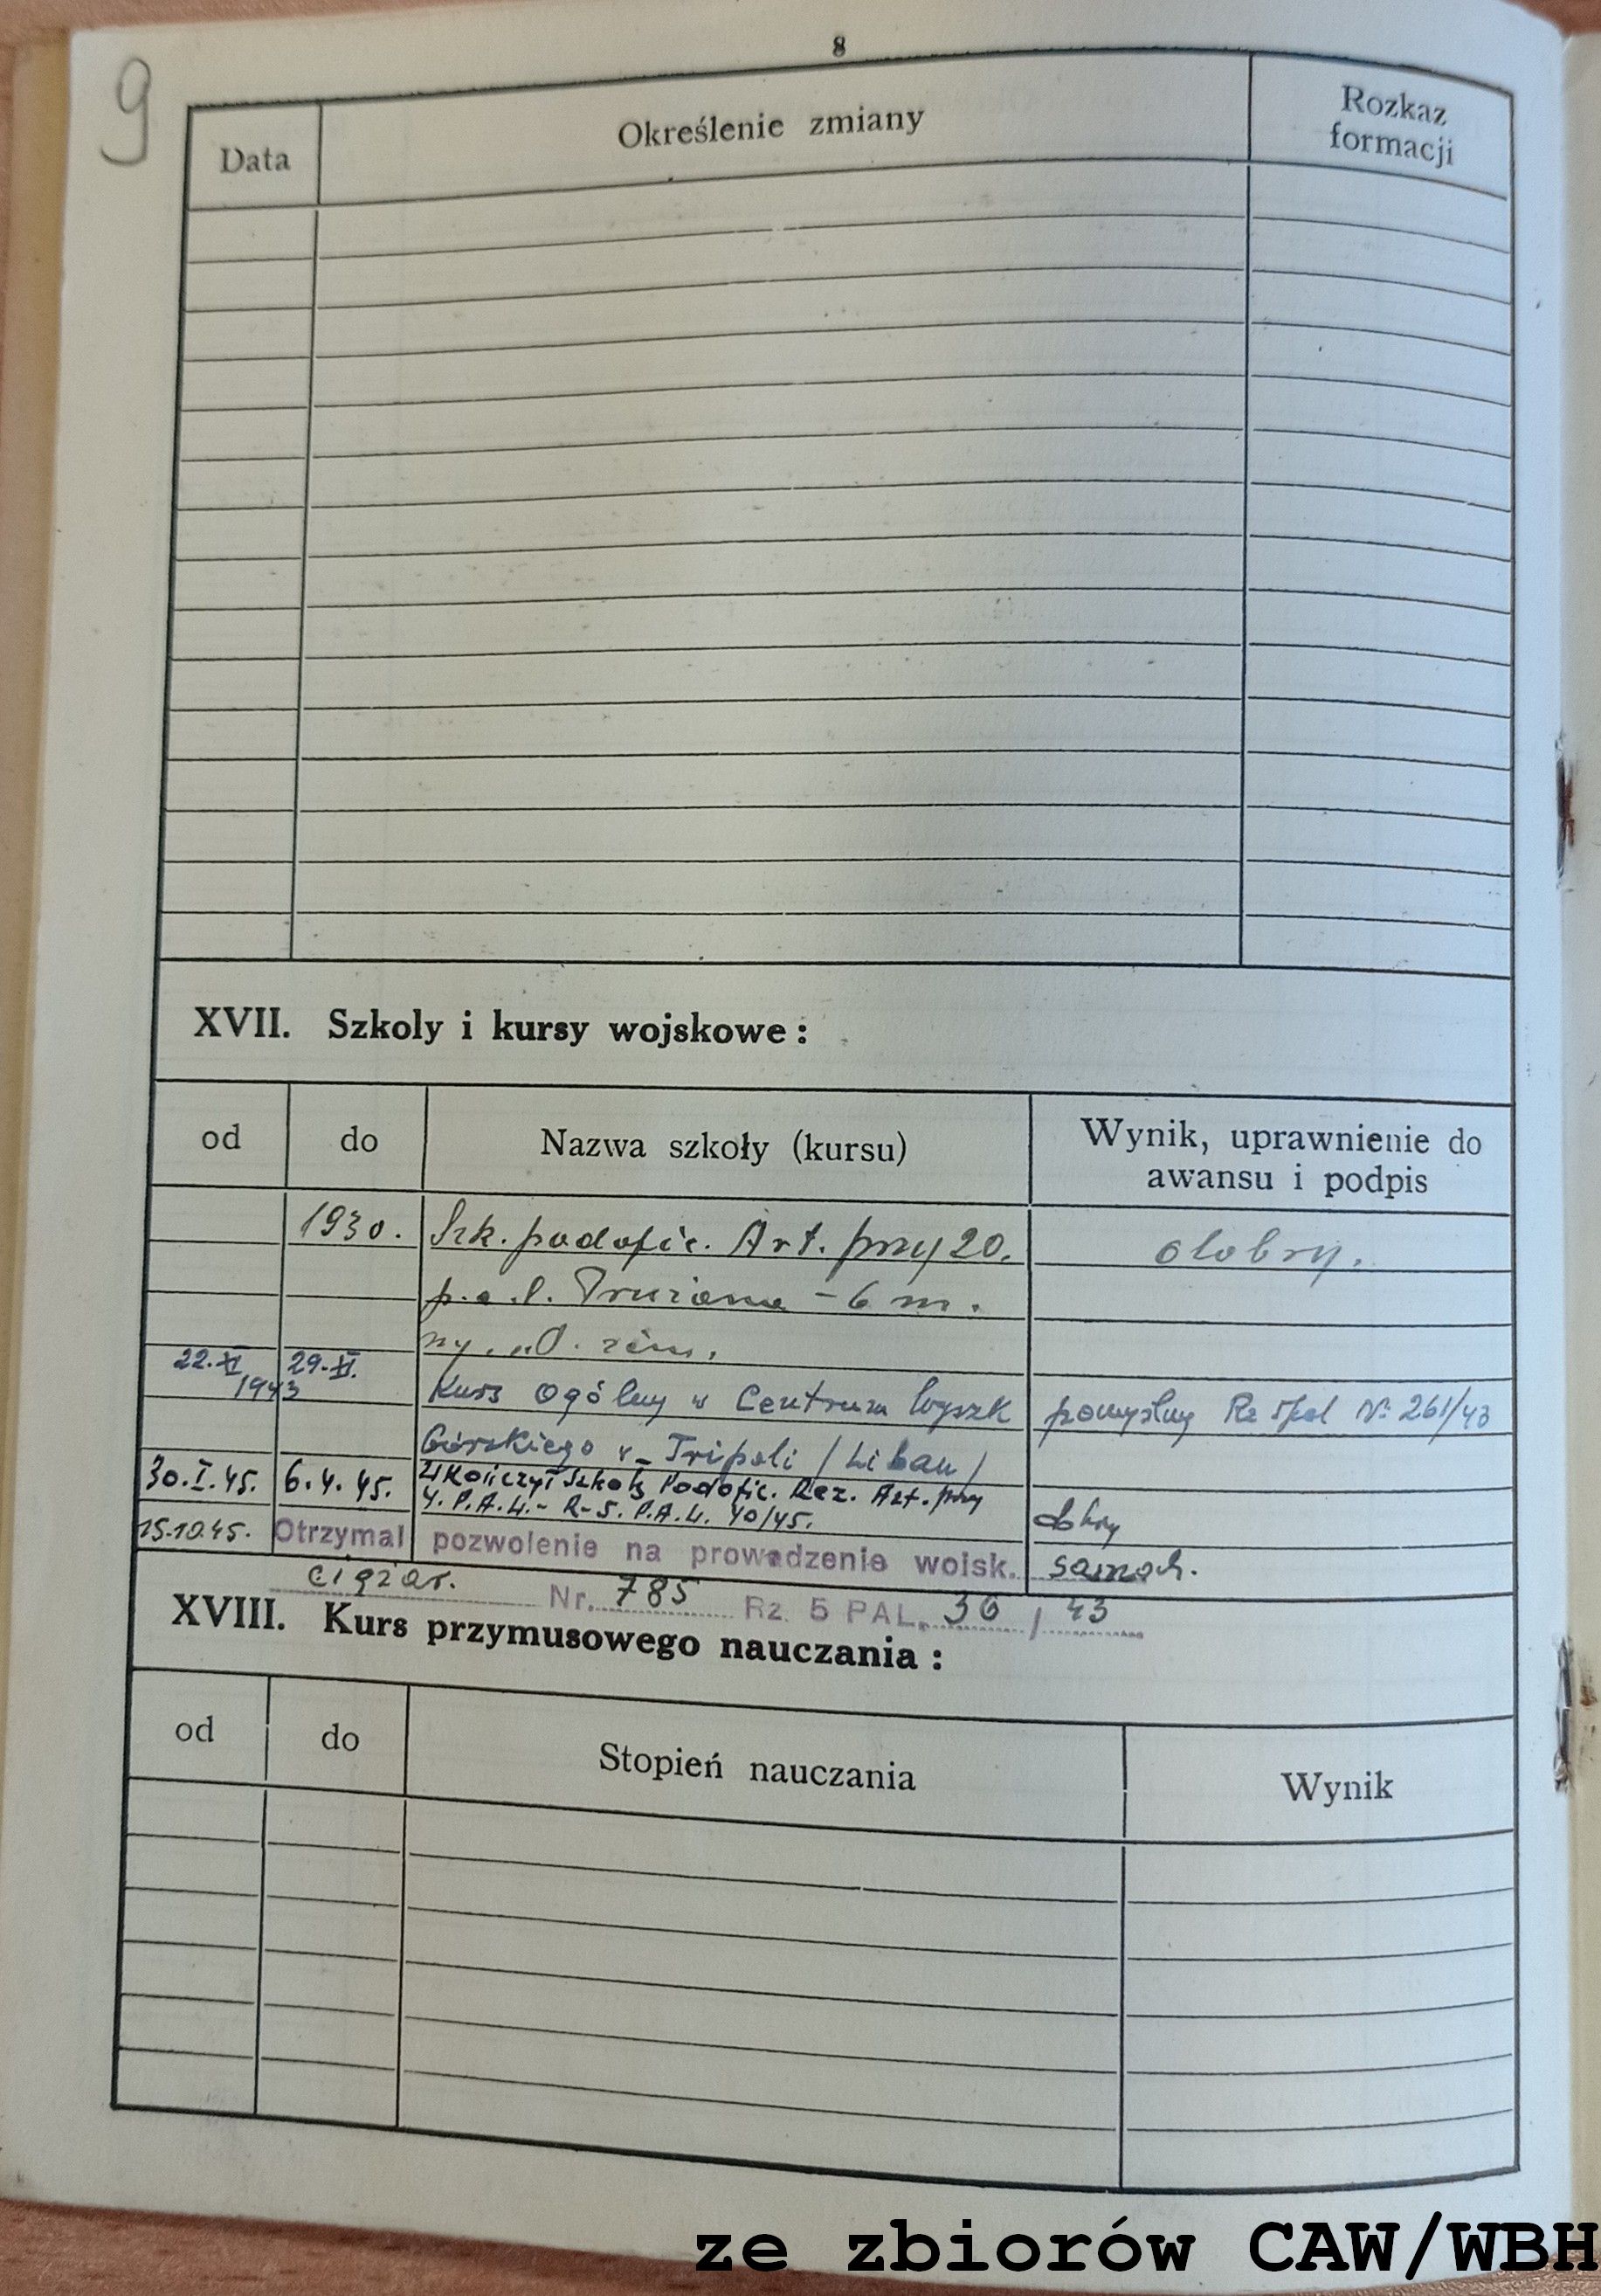 8
9
Data
Określenie zmiany
Rozkaz
formacji
XVII. Szkoly i kursy wojskowe:
od
do
Nazwa szkoły (kursu)
Wynik, uprawnienie do
awansu i podpis
1930. Szk. podofic. Art. przy 20. dobry.
p.a.l. Prużana - 6 m.
22.XI 29.XI.
1943
Kurs Ogólny w Centrum Wyszk pomyślny Rz Nr 261/43
Górskiego w Tripoli / Liban /
30.I.45. 6.4.45. Ukończył Szkołę Podofic. Rez. Art. przy
4. P.A.L.- R-5. P.A.L. 40/45. dobry
15.10.45. Otrzymal pozwolenie na prowadzenie wojsk. samoch.
ciężar. Nr. 785 Rz. 5 PAL. 36 / 43
XVIII. Kurs przymusowego nauczania:
od
do
Stopień nauczania
Wynik
ze zbiorów CAW/WBH